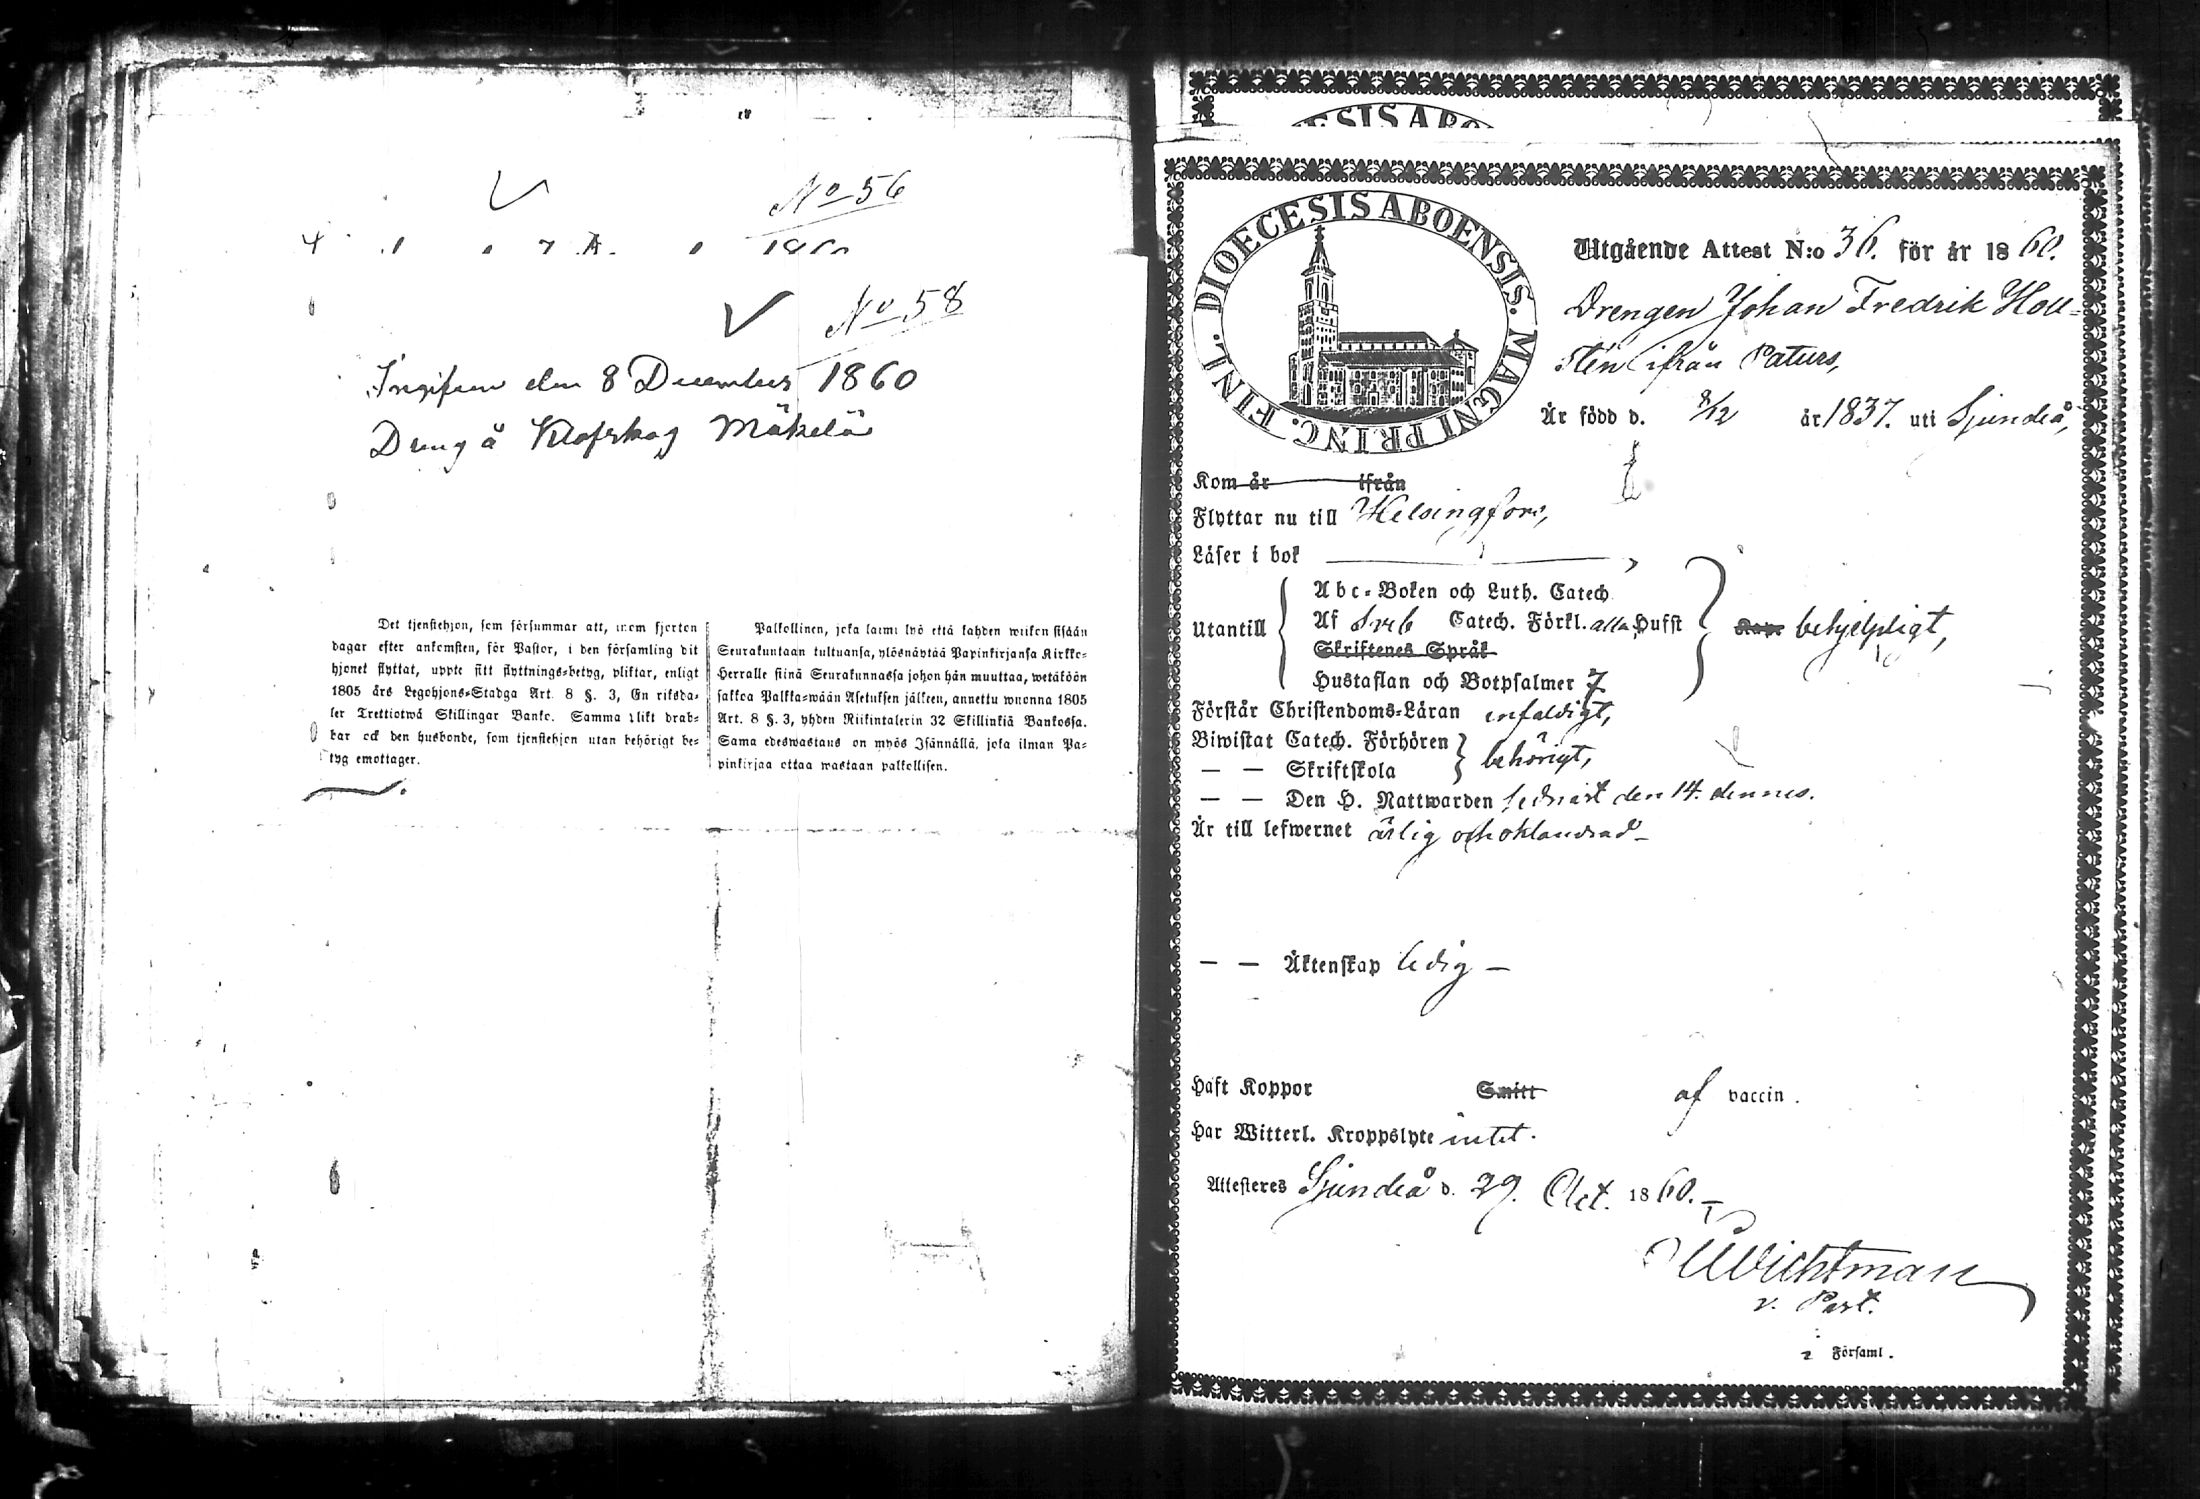 No 56
No 58
Ingifven den 8 December 1860
Dreng å Klafskog Mäkelä
Det tjenstehjon, som försummar att, inom fjorton
dagar efter ankomsten, för Pastor, i den församling dit
hjonet flyttat, uppte sitt flyttnings-betyg, pliktar, enligt
1805 års Legohjons-Stadga Art. 8 §. 3, En riksda-
ler Trettiotwå Skillingar Banko. Samma plikt drab-
bar ock den husbonde, som tjenstehjon utan behörigt be-
tyg emottager.
Palkollinen, joka laimi lyö että kahden wiikon sisään
Seurakuntaan tultuansa, ylösnäyttää Papinkirjansa Kirkko-
Herralle siinä Seurakunnassa johon hän muuttaa, wetäköön
sakkoa Palkka-wään Asetuksen jälkeen, annettu wuonna 1805
Art. 8 §. 3, yhden Riikintalerin 32 Skillinkiä Bankossa.
Sama edeswastaus on myös Isännällä, joka ilman Pa-
pinkirjaa ottaa wastaan palkollisen.
DIOECESIS ABOENSIS. MAGNI PRINC. FINL.
Utgående Attest N:o 36. för år 1860.
Drengen Johan Fredrik Holl-
stén ifrån Paturs,
Är född d. 8/12 år 1837. uti Sjundeå,
Kom år ifrån
Flyttar nu till Helsingfors,
Läser i bok
Utantill
Abc-Boken och Luth. Catech
Af Sveb Catech. Förkl. alla Hufst
Skriftenes Språk
Hustaflan och Botpsalmer 7
behjelpligt,
Förstår Christendoms-Läran enfaldigt,
Biwistat Catech. Förhören
— — Skriftskola
behörigt,
— — Den H. Nattwarden sednast den 14. dennes.
Är till lefwernet ärlig och oklandrad
— — Äktenskap ledig —
Haft Koppor Smitt af vaccin.
Har Witterl. Kroppslyte intet.
Attesteres Sjundeå d. 29. Oct. 1860.
Wichtman
v. Past.
i Församl.